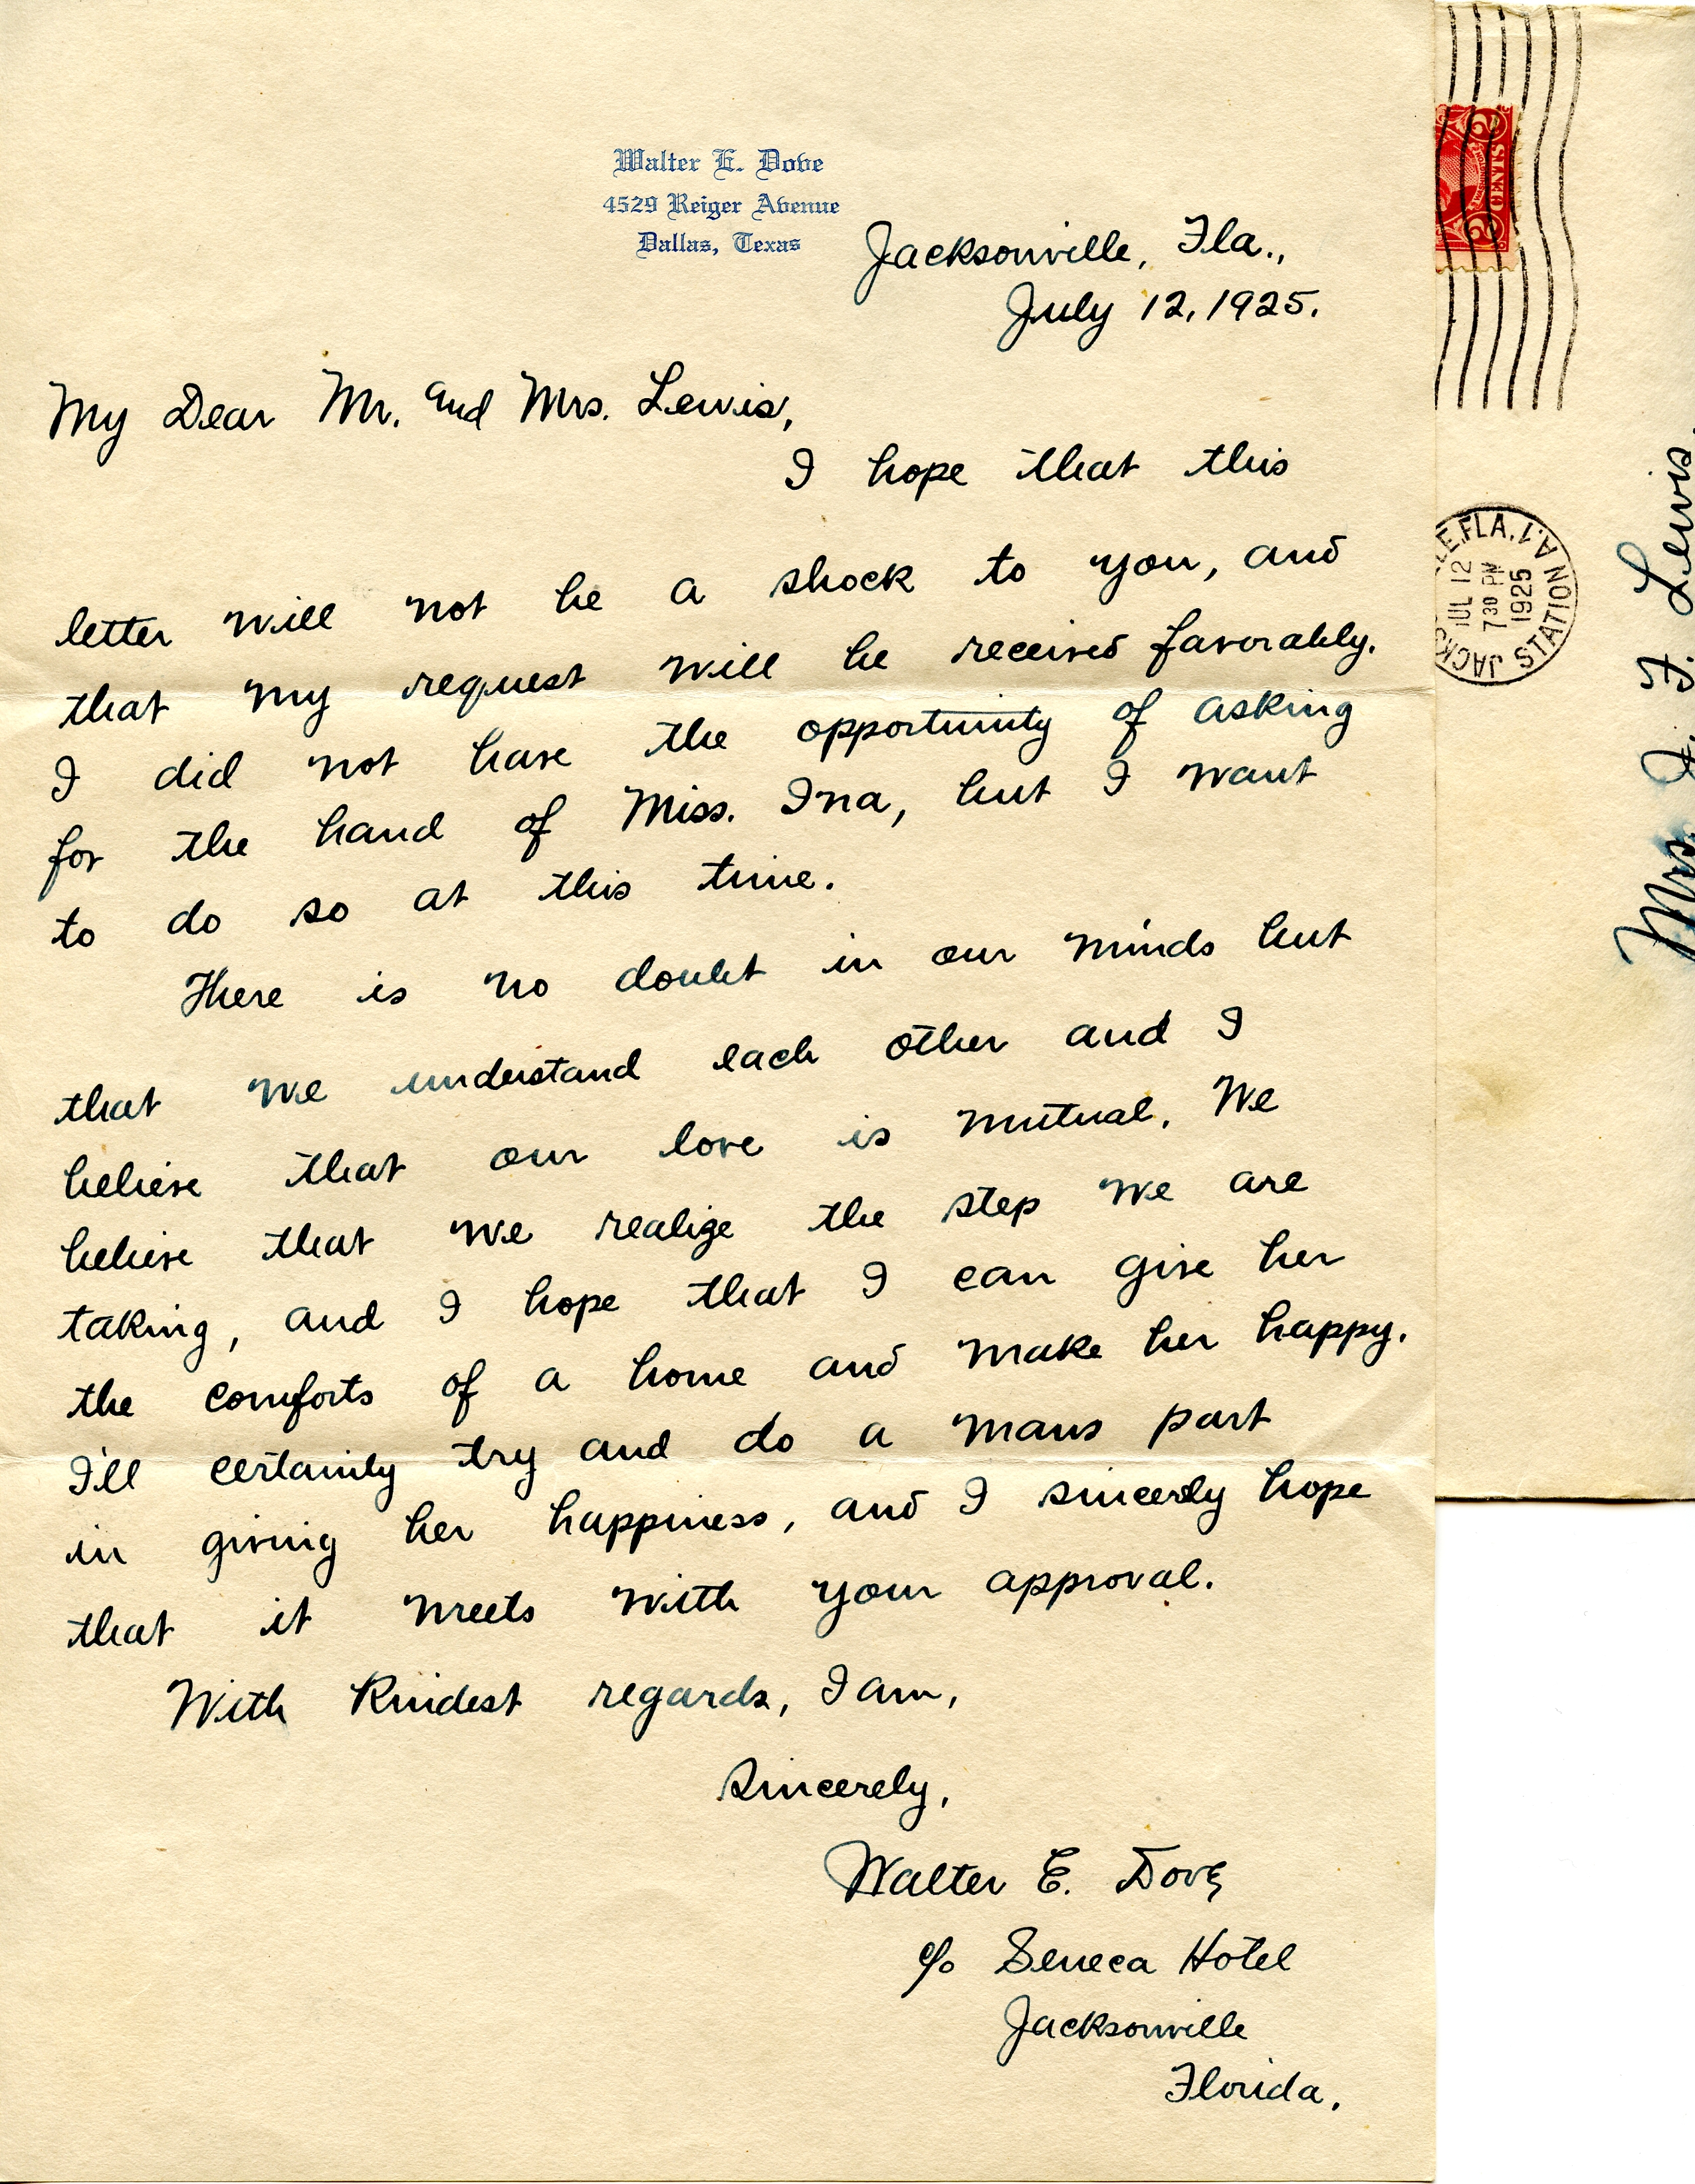 Walter E. Dove
4529 Reiger Avenue
Dallas, Texas
Jacksonville, Fla.,
July 12, 1925.
My Dear Mr. and Mrs. Lewis,
I hope that this
letter will not be a shock to you, and
that my request will be received favorably.
I did not have the opportunity of asking
for the hand of Miss. Ina, but I want
to do so at this time.
There is no doubt in our minds but
that we understand each other and I
believe that our love is mutual. We
believe that we realize the step we are
taking, and I hope that I can give her
the comforts of a home and make her happy.
I'll certainly try and do a mans part
in giving her happiness, and I sincerely hope
that it meets with your approval.
With kindest regards, I am,
Sincerely,
Walter E. Dove
c/o Seneca Hotel
Jacksonville
Florida.
2 CENTS 2
FLA.
JUL 12
7 30 PM
1925
STATION
JACKS
Mrs. J. F. Lewis,